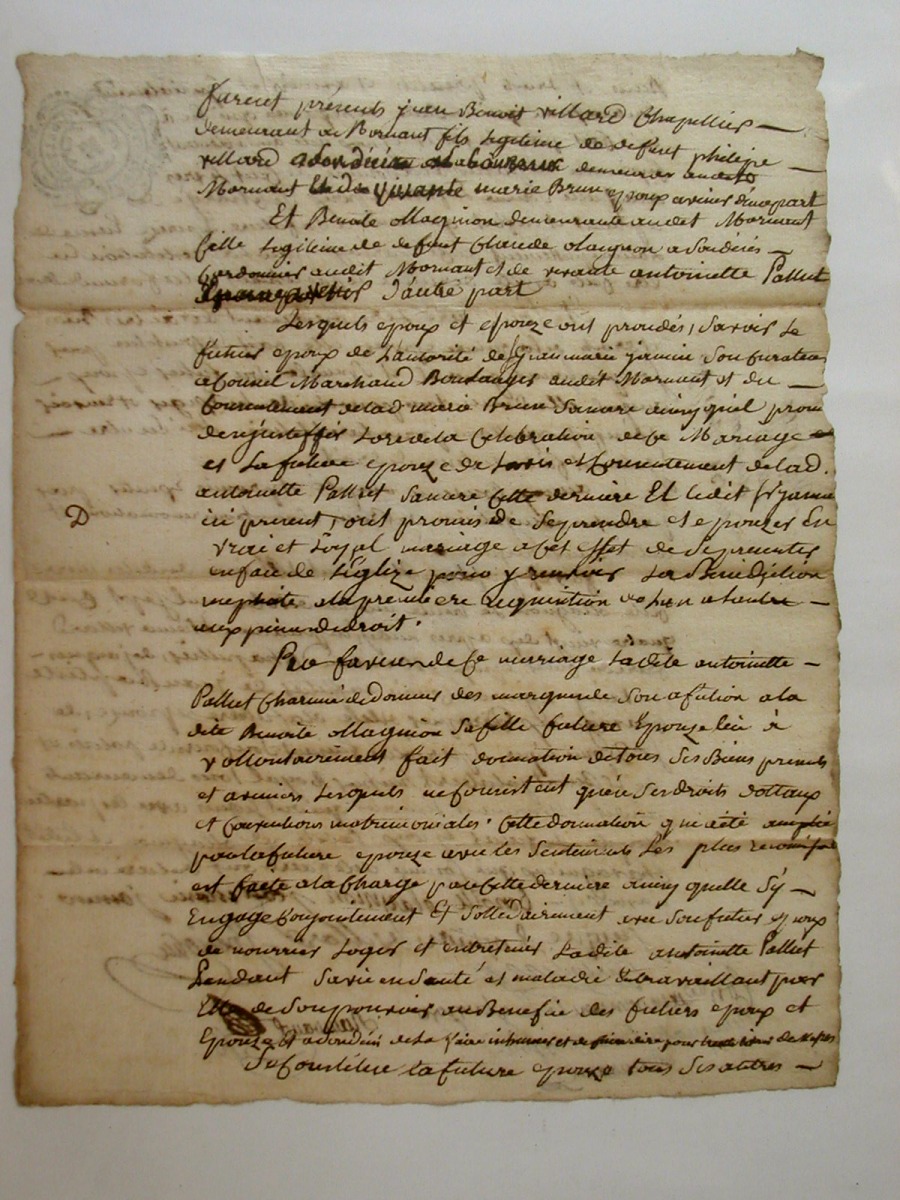 furent présents jean Benoit villard Chapellier
demeurant a Mornant fils legitime de defunt philipe
villard a son décéu demeurer audit
Mornant Et de vivante marie Brun epoux avenir d'une part
Et Benoite Magnion demeurante audit Mornant
fille legitime de defunt Claude Magnion a son décés
Cordonnier audit Mornant et de vivante antoinette Pallut
d'autre part
Lesquels epoux et epouze ont procédés, savoir le
futur epoux de l'autorité de jean marie son curateur
Conseil Marchand Boulanger audit Mornant et du
Consentement de lad marie Brun sa mere ainsy quil prom
de justiffié lors de la Celebration de Ce Mariage
et la future epouze de lavis et Consentement de lad.
antoinette Pallut sa mere Cette derniere Et ledit Sr
ici present, ont promis de se prendre et epouzer En
D
vrai et loyal mariage a Cet effet de se presenter
en face de l'églize pour y recevoir la Benediction
nuptiale a la premiere requisition de lun a lautre
aux peines de droit.
Pour faveur de Ce marriage ladite antoinette
Pallut Charmé de donner des marques de son afection a la
dite Benoite Magnion sa fille future Epouze lui à
vollontairement fait donnation de tous ses Biens presents
et avenirs lesquels ne Consistent qu'en ses droits dottaux
et Conventions matrimoniales. Cette donnation qui a été
par la future epouze avec les sentiments les plus
est faite a la Charge par Cette derniere ainsy quelle s'y
Engage Conjointement Et sollidairement avec son futur epoux
de nourrir loger et entretenir ladite antoinette Pallut
Pendant sa vie en santé et maladie En travaillant par
Elle de son pouvoir au Benefice des futurs epoux et
Epouze et a son décéu de la faire inhumer et de faire dire pour des Messes
Se Constitue la future epouze tous ses autres